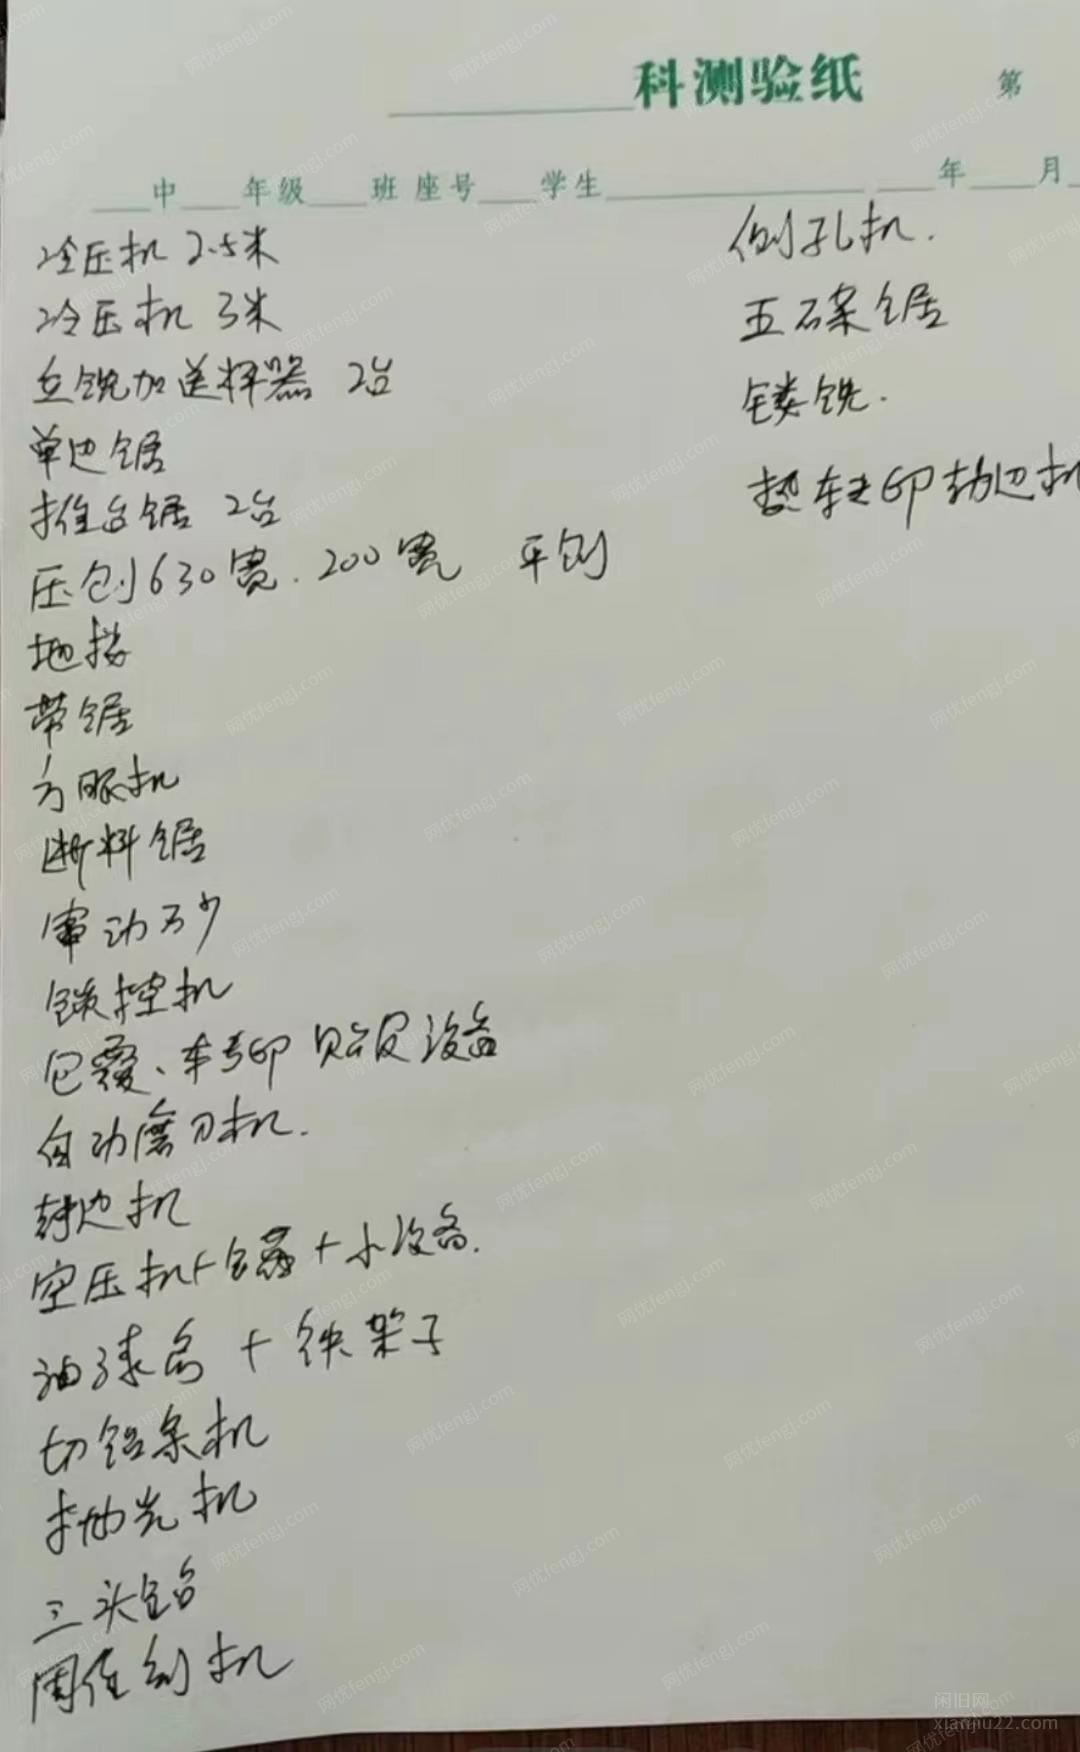 科测验纸 第
中 年级 班 座号 学生 年 月
冷压机 2.5米
冷压机 3米
立铣加送料器 2台
单边锯
推台锯 2台
压刨630宽.200宽 平刨
地搂
带锯
方眼机
断料锯
震动砂
链控机
包覆、转印 贴皮设备
自动磨刀机.
封边机
空压机+ + 小设备.
油漆房 + 铁架子
切铝条机
抛光机
三头钻
圆住刨机
侧孔机.
五石案锯
镂铣.
热转印 边机
闲旧网
xianjiu22.com
网优fengj.com